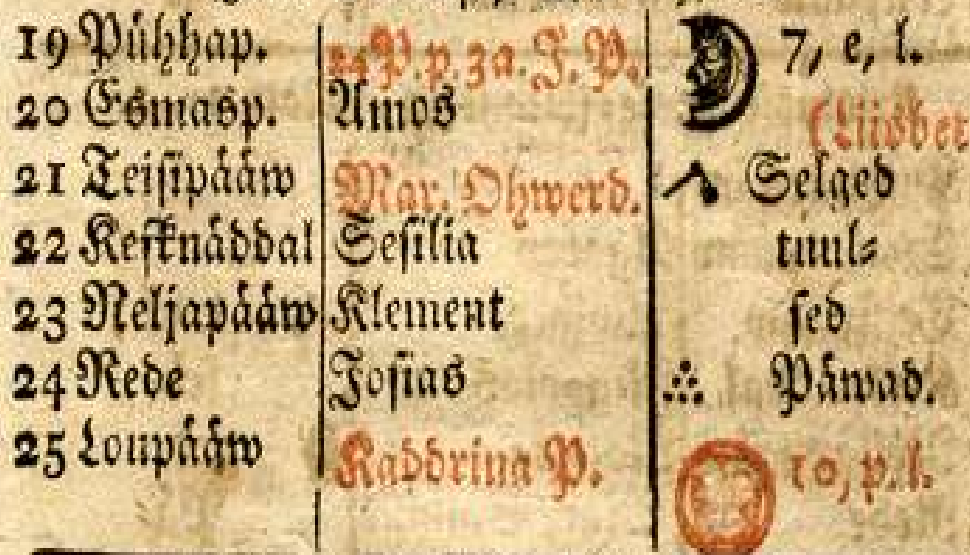 19 Pühhap. 24 P. p. 3 a. J. P. 7, e, l.
20 Esmasp. Amos (Liisbet
21 Teisipääw Mar. Ohwerd. Selged
22 Kesknäddal Sesilia tuul-
23 Neljapääw Klement sed
24 Rede Josias Päwad.
25 Loupääw Kaddrina P. 10, p. l.